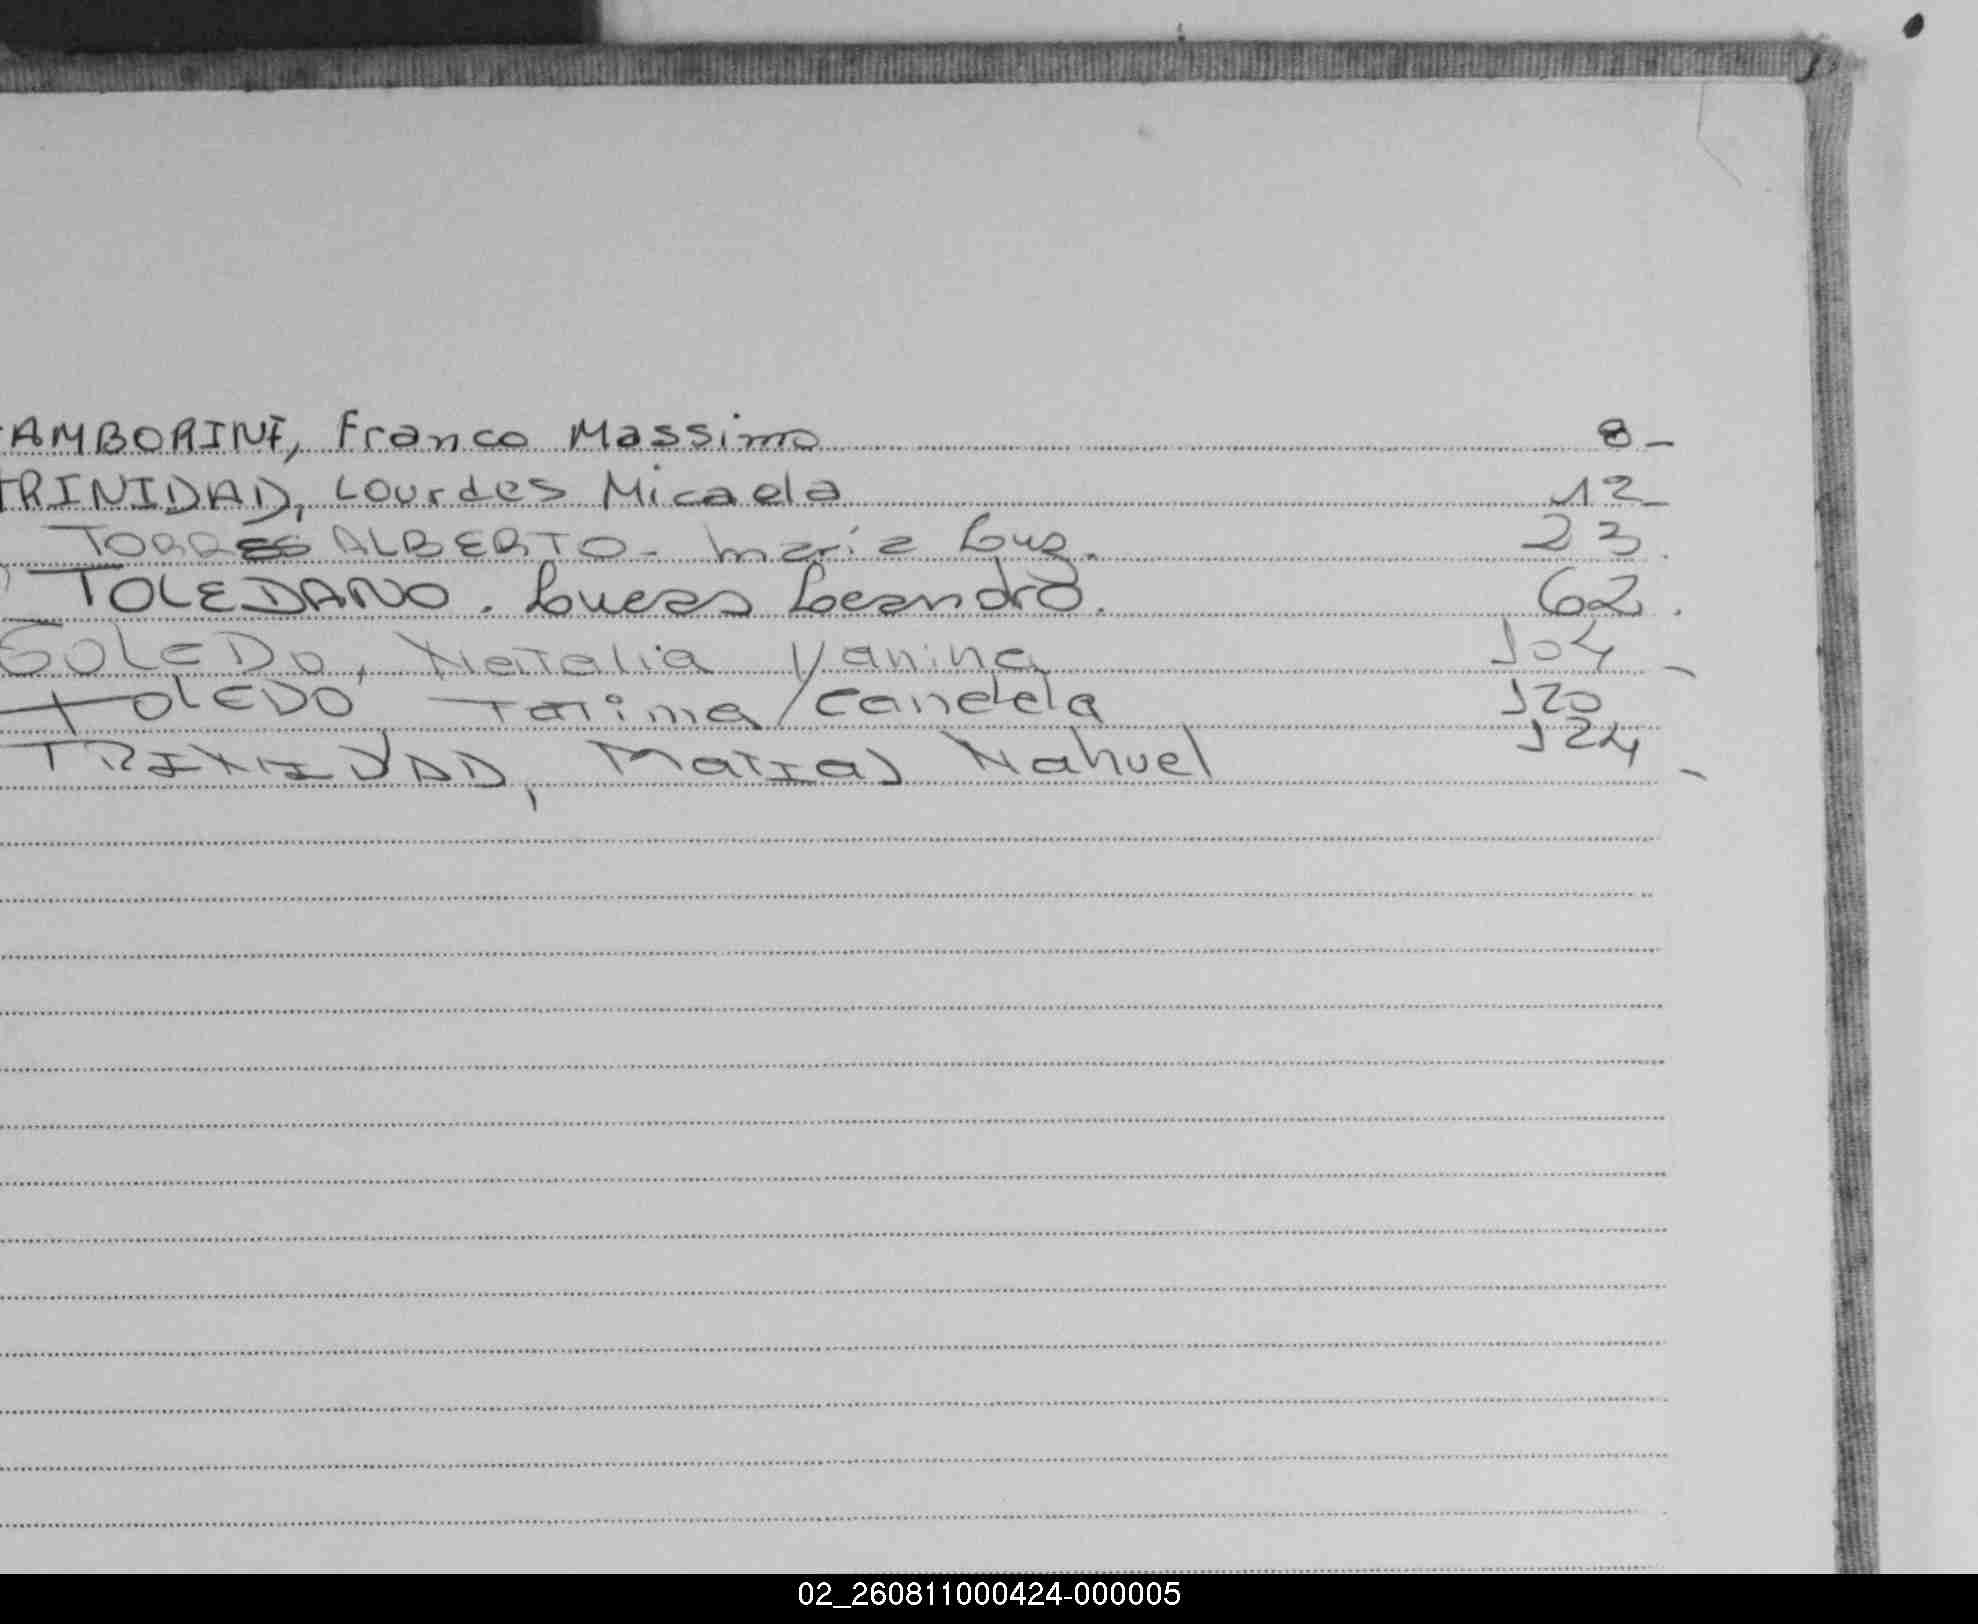 TAMBORINI, Franco Massimo 8-
TRINIDAD, Lourdes Micaela 12-
TORRES ALBERTO - Maria Luz. 23.
TOLEDANO. Lucas Leandro. 62.
TOLEDO, Natalia Yanina 104-
TOLEDO Candela 120
TRINIDAD, Matias Nahuel 124-
02_260811000424-000005